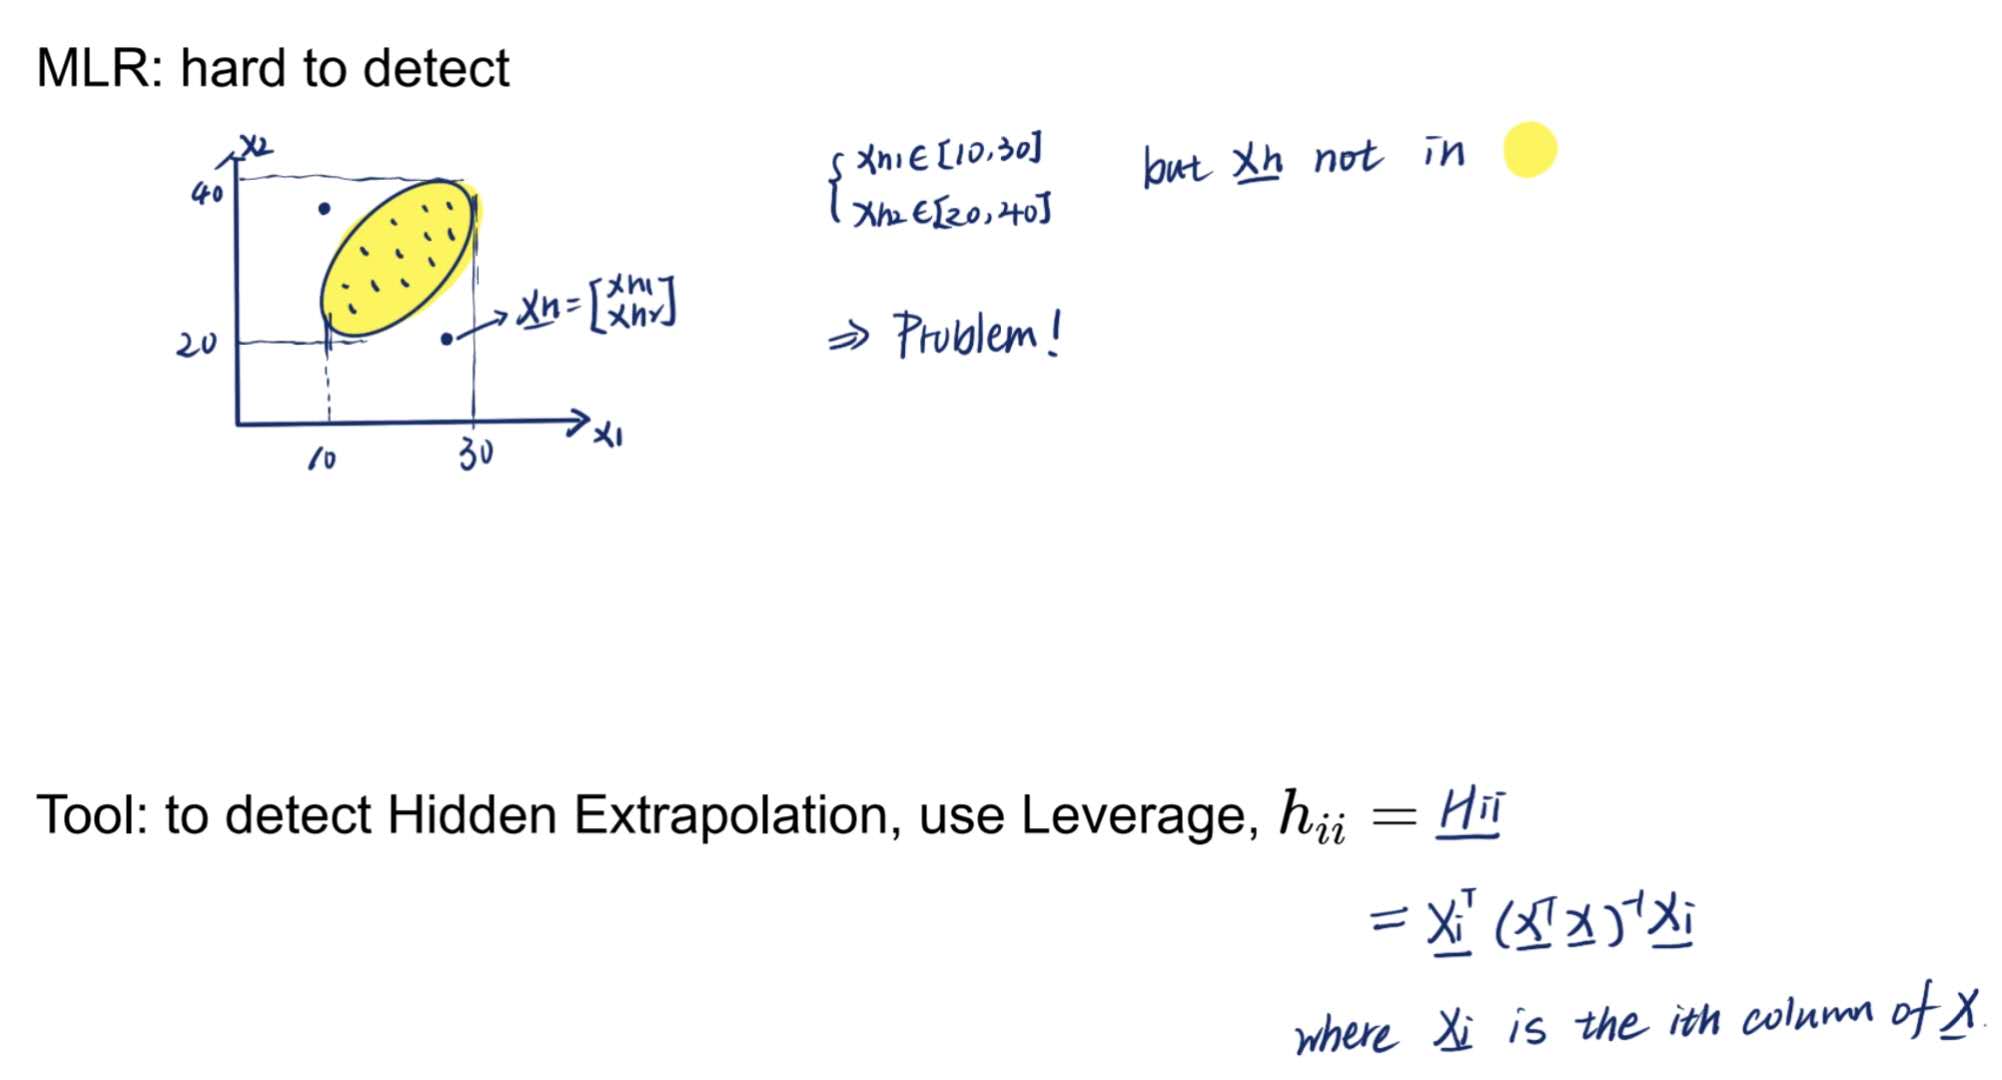 MLR: hard to detect
x2
40
20
10
30
x1
xh = [xh1 xh2]
{ xh1 ∈ [10,30]
xh2 ∈ [20,40]
but xh not in
⇒ Problem!
Tool: to detect Hidden Extrapolation, use Leverage, hᵢᵢ = Hii
= xiᵀ (XᵀX)⁻¹ xi
where xi is the ith column of X.